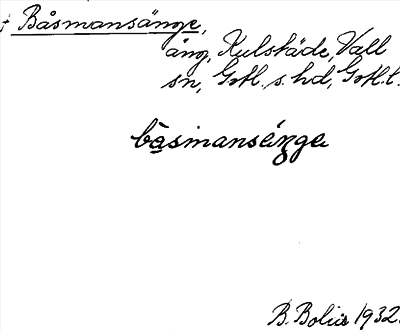 † Båsmansänge,
äng, Kulstäde, Vall
sn, Gotl. s. hd, Gotl. l.
båsmansänge
B. Bolin 1932.